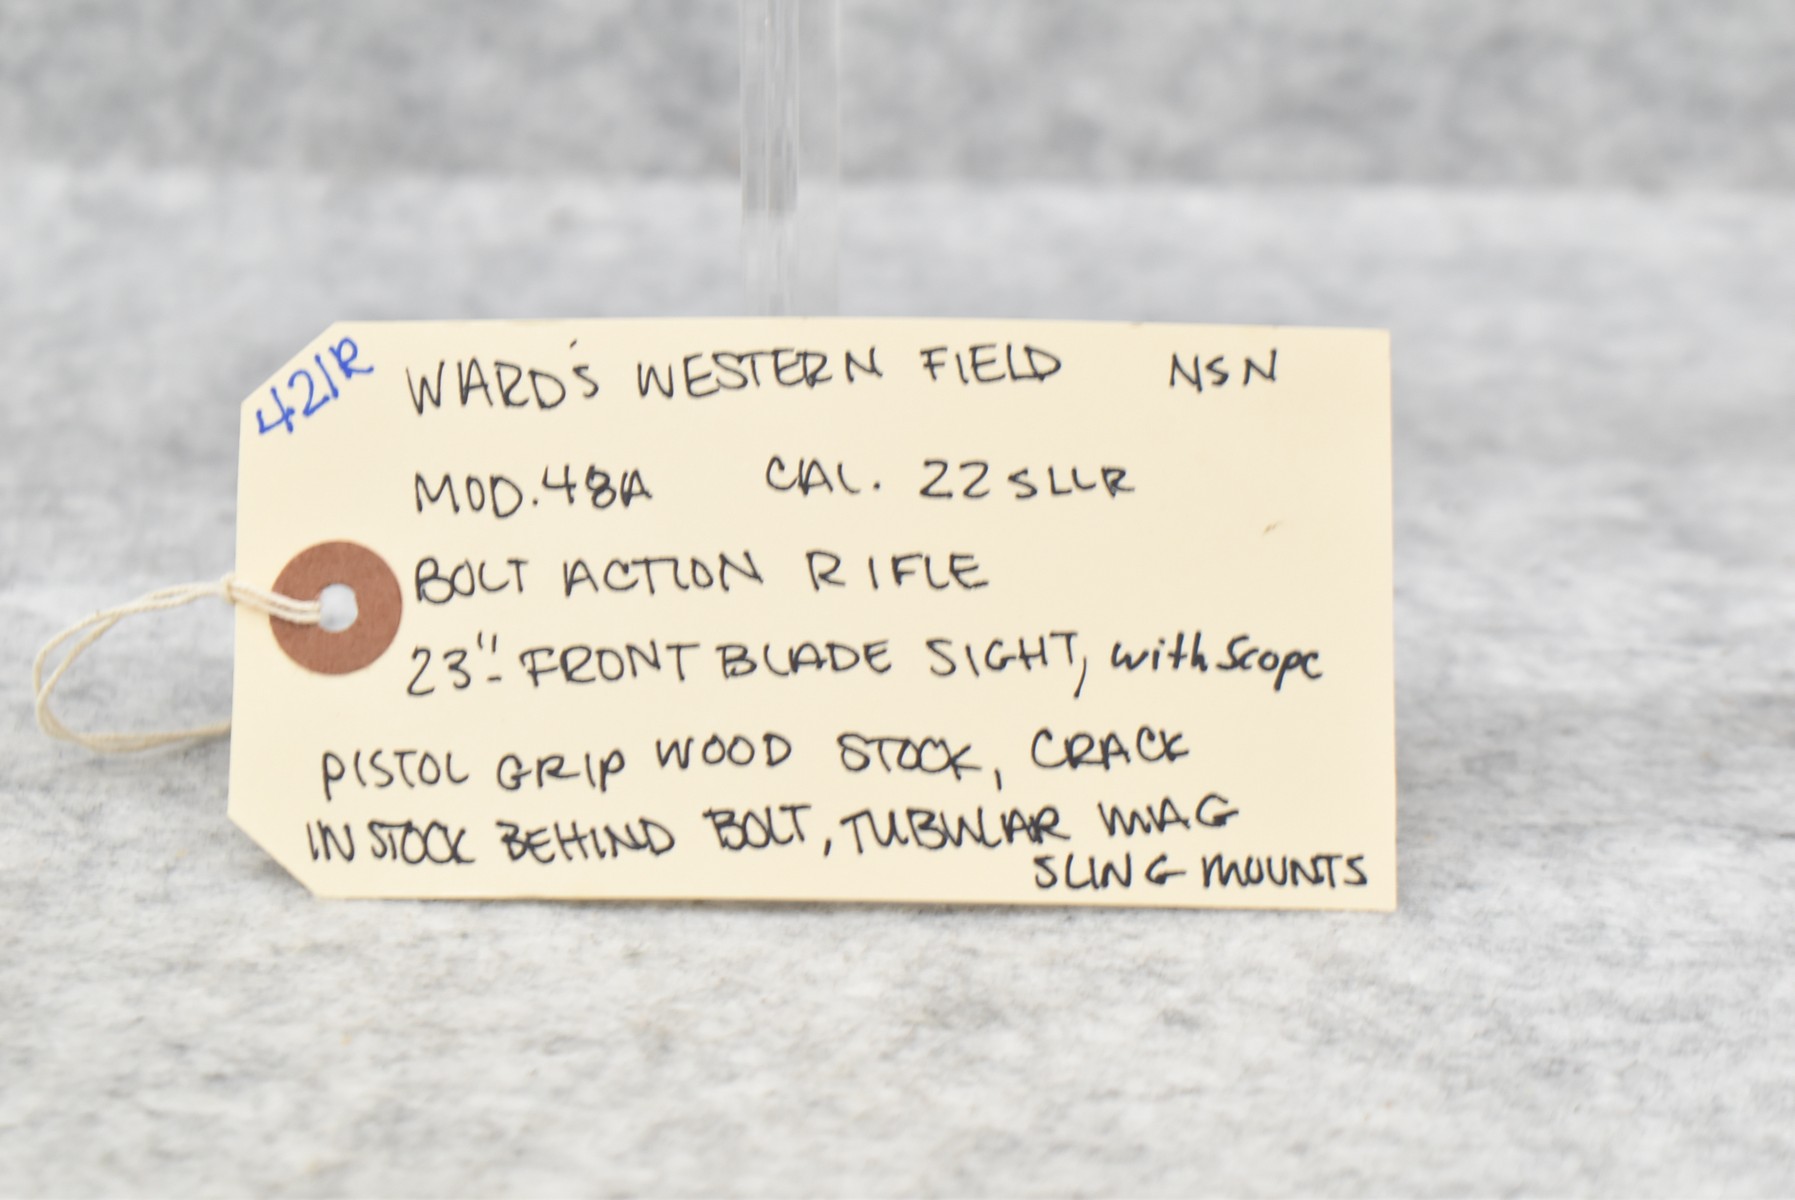 421R
WARD'S WESTERN FIELD NSN
MOD. 48A CAL. 22 SLLR
BOLT ACTION RIFLE
23"- FRONT BLADE SIGHT, with Scope
PISTOL GRIP WOOD STOCK, CRACK
IN STOCK BEHIND BOLT, TUBULAR MAG
SLING MOUNTS